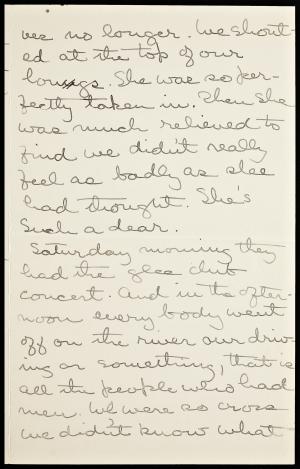 ves no longer. We shout-
ed at the top of our
lungs. She was so per-
fectly taken in. Then she
was much relieved to
find we didn't really
feel as badly as she
had thought. She's
such a dear.
Saturday morning they
had the glee club
concert. And in the after-
noon every body went
off on the river our driv-
ing or something, that is
all the people who had
men. We were so cross
we didn't know what